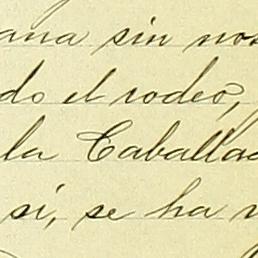 ana sin nos
do el rodeo,
la Caballa
sí, se ha